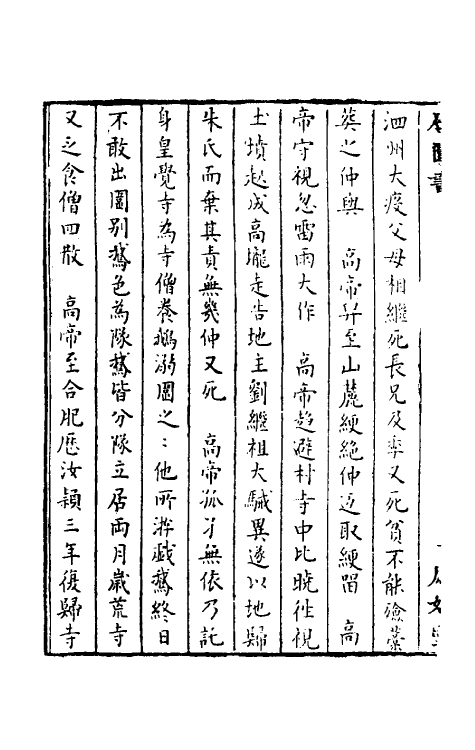 泗州大疫父母相繼死長兄及李又死貧不能殮藁
葬之仲與　高帝舁至山麓綆絶仲返取綆留　高
帝守視忽雷雨大作　高帝趋避村寺中比曉徃視
土墳起成高壠走告地主劉繼祖大駴異遂以地歸
朱氏而棄其責無幾仲又死　高帝孤孑無依乃託
身皇覺寺為寺僧養鵝溺圊之:他所涬戯鵞終日
不敢出圊别鵞色為隊鵞皆分隊立居兩月嵗荒寺
又乏食僧四散　高帝至合肥歷汝頴三年復歸寺